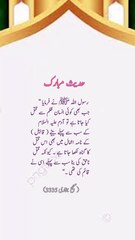 حدیث مبارک
رسول اللہ ﷺ نے فرمایا "
جب بھی کوئی انسان ظلم سے قتل
کیا جاتا ہے تو آدم علیہ السلام
کے سب سے پہلے بیٹے ( قابیل )
کے نامہ اعمال میں بھی اس قتل
کا گناہ لکھا جاتا ہے ۔ کیونکہ قتل
ناحق کی بنا سب سے پہلے اسی نے
قائم کی تھی ۔ "
( صحیح بخاری 3335 )